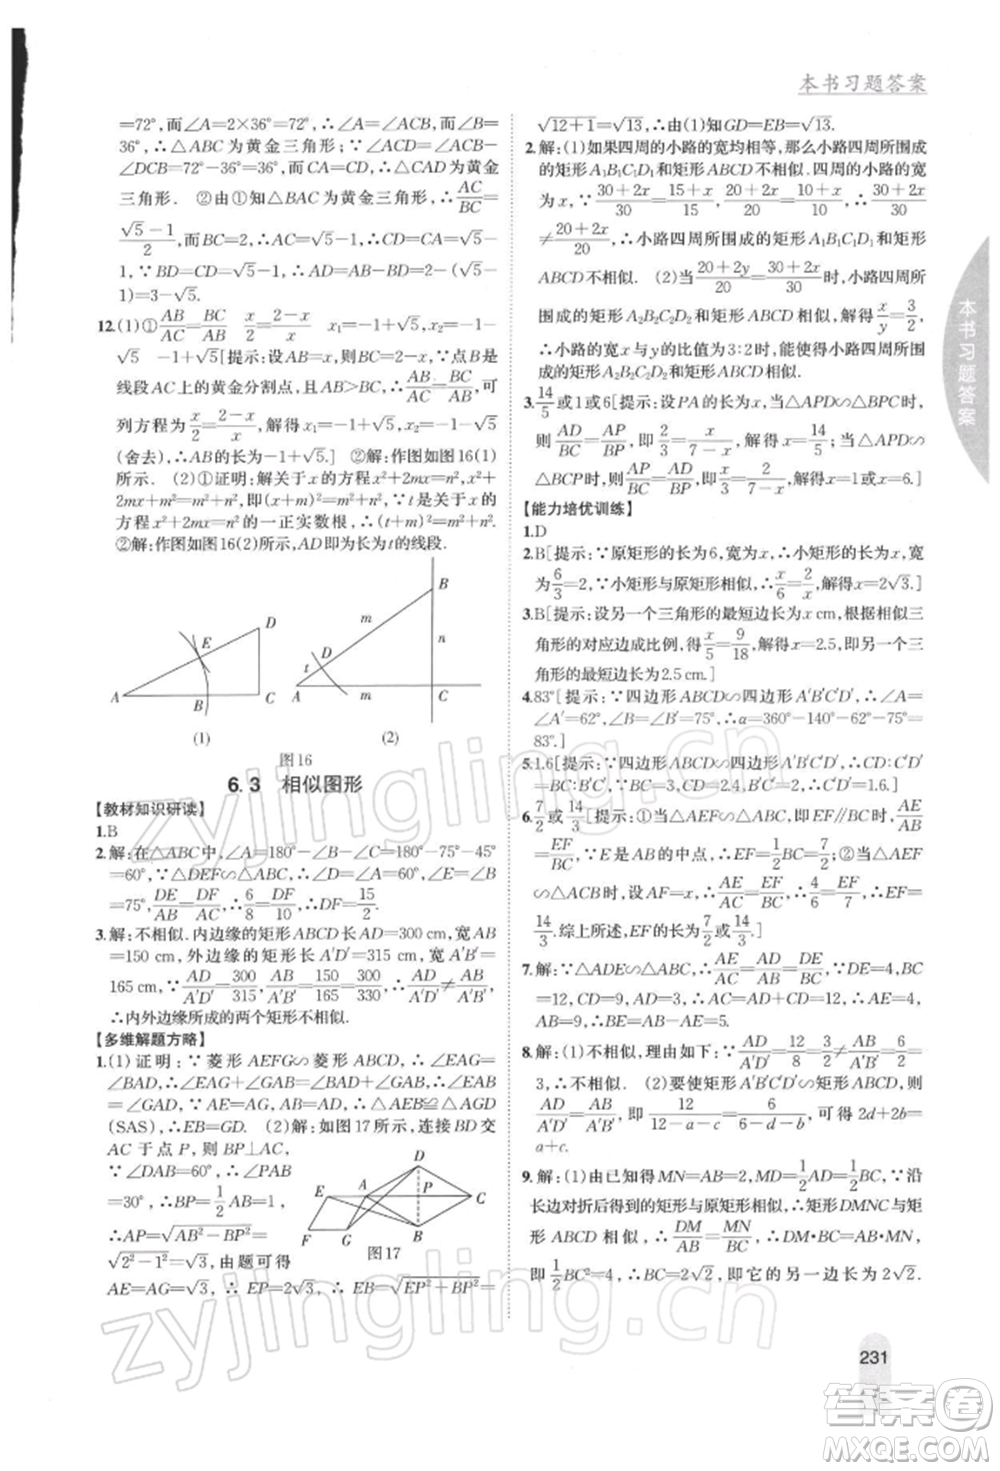 本书习题答案
=72°,而∠A=2×36°=72°,∴∠A=∠ACB,而∠B=
36°,∴△ABC为黄金三角形;∵∠CAD=72°,∠
DCB=72°-36°=36°,而CA=CD,∴△CAD为黄金
三角形. ②由①知△BAC为黄金三角形,∴AC/BC=
(√5-1)/2,而BC=2,∴AC=√5-1,∴CD=CA=√5-
1,∵BD=CD=√5-1,∴AD=AB-BD=2-(√5-
1)=3-√5.
12.(1)①AB/AC=BC/AB x/2=(2-x)/x x₁=-1+√5,x₂=-1-
√5 √5-1[提示:设AB=x,则BC=2-x,∵点B是
线段AC上的黄金分割点,且AB>BC,∴AB/AC=BC/AB,可
列方程为x/2=(2-x)/x,解得x₁=-1+√5,x₂=-1-√5
(舍去),∴AB=√5-1.] ②解:作图如图16(1)
所示. (2)①证明:解关于x的方程x²+2mx=n²,x²+
2mx+m²=m²+n²,即(x+m)²=m²+n²,∵t是关于x的方程
x²+2mx=n²的一正实数根,∴(t+m)²=m²+n².
②解:作图如图16(2)所示,AD即为长为t的线段.
A B C D E
(1)
A B C D t m n m
(2)
图16
6.3 相似图形
【教材知识研读】
1.B
2.解:在△ABC中,∠A=180°-∠B-∠C=180°-75°-45°
=60°,∵△DEF∽△ABC,∴∠D=∠A=60°,∠E=∠B
=75°,DE/AB=DF/AC,∴6/8=DF/10,∴DF=15/2.
3.解:不相似.内边缘的矩形ABCD长AD=300 cm,宽AB
=150 cm,外边缘的矩形A′B′C′D′长A′D′=330 cm,宽A′B′=
165 cm,∵AD/A′D′=300/330=10/11,AB/A′B′=150/165=10/11
∴内外边缘所成的两个矩形不相似.
【多维解题方略】
1.(1)证明:∵菱形AEFG∽菱形ABCD,∴∠EAG=
∠BAD,∴∠EAG+∠GAB=∠BAD+∠GAB,∴∠EAB
=∠GAD,∵AE=AG,AB=AD,∴△AEB≌△AGD
(SAS),∴EB=GD. (2)解:如图17所示,连接BD交
AC于点P,则BP⊥AC,
∵∠DAB=60°,∴∠PAB
=30°,∴BP=1/2AB=1,
∴AP=√(AB²-BP²)=
√(2²-1²)=√3,由题可得
AE=AG=√3,∴EP=2√3,∴EB=√(EP²+BP²)=
E A D P C F G B
图17
√(12+1)=√13,∴由(1)知GD=EB=√13.
2.解:(1)如果四周的宽均相等,那么小路四周所围成
的矩形A₁B₁C₁D₁和矩形ABCD不相似.四周的小路的宽
为x,∵(30+2x)/30=(15+x)/15,(20+2x)/20=(10+x)/10,∴(30+2x)/30
≠(20+2x)/20,∴小路四周所围成的矩形A₁B₁C₁D₁和矩形
ABCD不相似. (2)当(20+2y)/20=(30+2x)/30时,小路四周所
围成的矩形A₂B₂C₂D₂和矩形ABCD相似,解得x/y=3/2,
∴小路的宽x与y的比值为3:2时,能使小路四周所围
成的矩形A₂B₂C₂D₂和矩形ABCD相似.
3.14/5或1或6[提示:设PA的长为x,当△APD∽△BPC时,
则AD/BC=AP/BP,即2/3=x/(7-x),解得x=14/5;当△APD∽
△BCP时,AP/BC=AD/BP,即x/3=2/(7-x),解得x=1或x=6.]
【能力培优训练】
1.D
2.B[提示:∵原矩形的长为6,宽为x,∴小矩形的长为x,宽
为6/3=2,∵小矩形与原矩形相似,∴x/6=2/x,解得x=2√3.]
3.B[提示:设另一个三角形的最短边长为x cm,根据相似三
角形的对应边成比例,得x/5=9/18,解得x=2.5,即另一个三
角形的最短边长为2.5 cm.]
4.83°[提示:∵四边形ABCD∽四边形A′B′C′D′,∴∠A=
∠A′=62°,∠B=∠B′=75°,∴α=360°-140°-62°-75°=
83°.]
5.1.6[提示:∵四边形ABCD∽四边形A′B′C′D′,∴CD:C′D′=
BC:B′C′,∵BC=3,CD=2.4,B′C′=2,∴C′D′=1.6.]
6.7/2或14/3[提示:①当△AEF∽△ABC时,则EF∥BC,AE/AB
=EF/BC,∵E为AB的中点,∴EF=1/2BC=7/2;②当△AEF
∽△ACB时,设AF=x,∴AE/AC=EF/BC,即4/6=EF/7,∴EF=
14/3.综上所述,EF的长为7/2或14/3.]
7.解:∵△ADE∽△ABC,∴AE/AC=AD/AB=DE/BC,∵BC
=12,DE=6,AC=8,AD=5,∴AE=4,AB=10,∴CE=4,
BD=5.
8.解:(1)不相似,理由如下:AD/A′D′=12/8=3/2,AB/A′B′=6/2=
3,∴不相似. (2)要使矩形A′B′C′D′与矩形ABCD相似,
AD/A′D′=AB/A′B′,只要12/(12-a-c)=6/(6-b-d),即可得2d+2b=
a+c.
9.解:(1)由已知得MN=AB=2,MD=1/2AD=1/2BC,∵沿
长边对折后得到的矩形与原矩形相似,∴矩形DMNC与矩
形ABCD相似,∴DM/AB=MN/BC,∴DM·BC=AB·MN,
即1/2BC²=4,∴BC=AD=2√2,即它的另一边长为2√2.
本书习题答案
231
zyjingling.cn
zyjingling.cn
答案圈
MXQE.COM